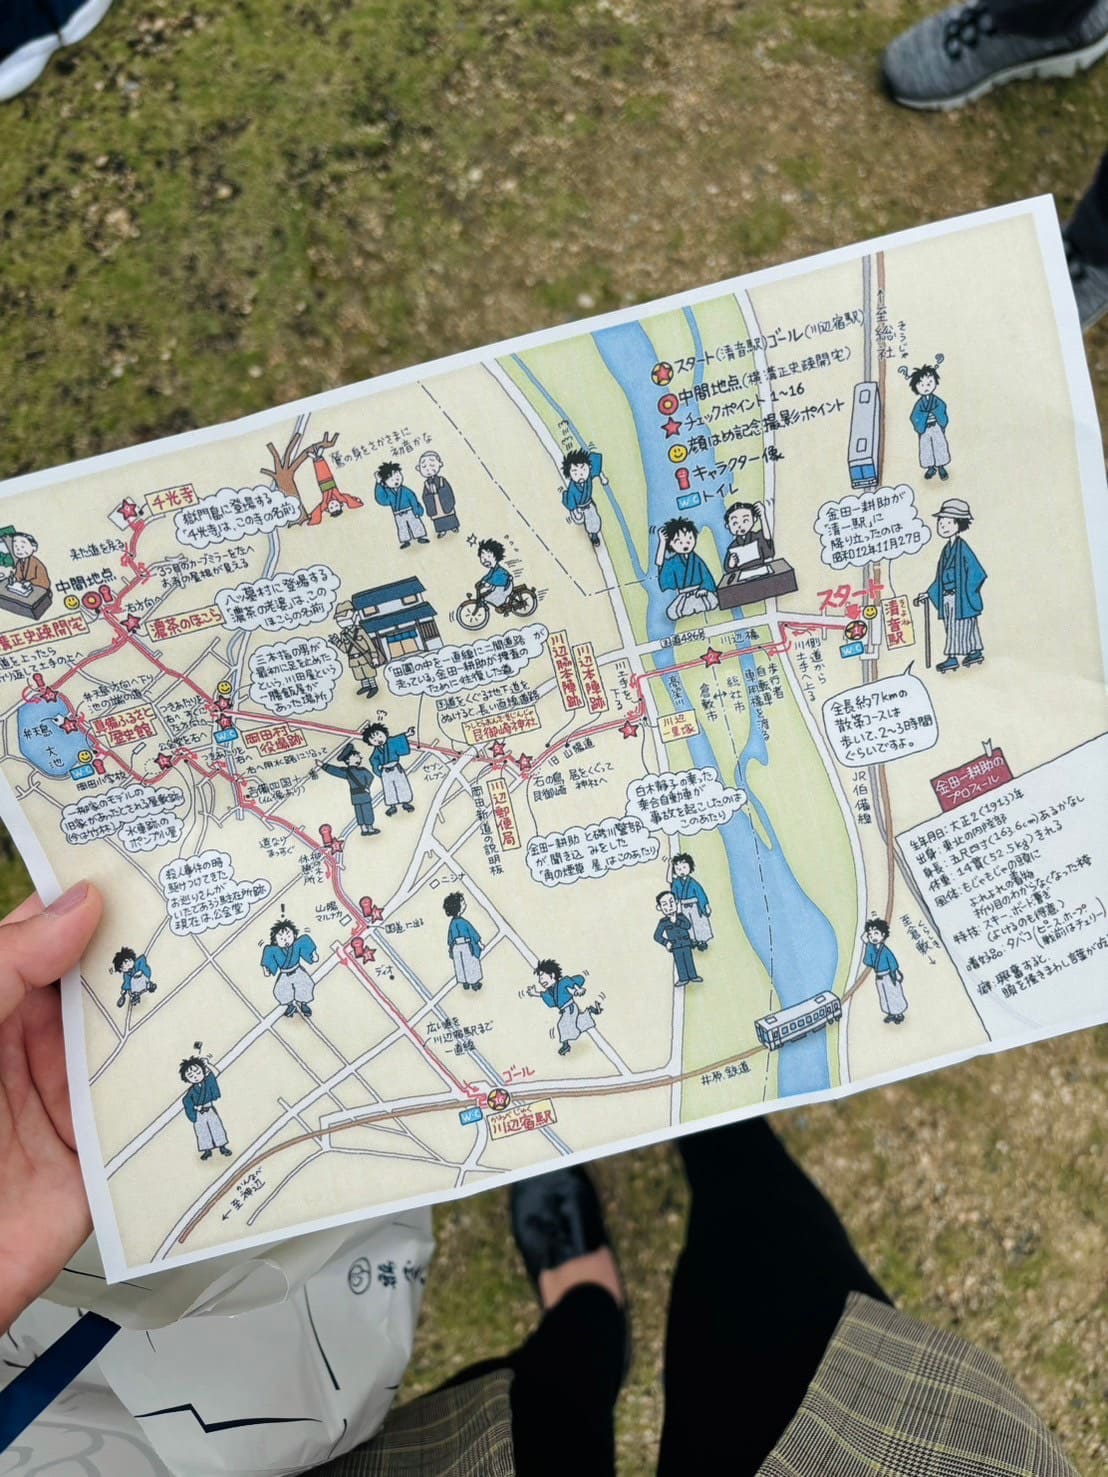 スタート(清音駅)ゴール(川辺宿駅)
中間地点(横溝正史疎開宅)
チェックポイント 1~16
顔はめ記念撮影ポイント
キャラクター像
W.C トイレ
↑至総社
そうじゃ
金田一耕助が
「清一駅」に
降り立ったのは
昭和12年11月27日
スタート
きよね
清音駅
W.C
川側
道から
土手へ上る
全長約7kmの
散策コースは
歩いて、2~3時間
ぐらいですよ。
JR伯備線
金田一耕助の
プロフィール
生年月日:大正2(1913)年
出身:東北の内陸部
身長:五尺四寸(163.6cm)あるかなし
体重:14貫(52.5kg)される
風体:もじゃもじゃの頭に
よれよれの着物
折り目のわからなくなった袴
特技:スキー、ボート漕ぎ
(よけるのも得意)
嗜好品:タバコ(ピース、ホープ
戦前はチェリー)
癖:興奮すると、
頭を掻きまわし言葉が
至倉敷→
くらしき
国道486号
川辺橋
高梁川
倉敷市
総社市
歩行者
自転車
専用橋を渡る
川辺
一里塚
土手を下る
川辺本陣跡
川辺脇本陣跡
旧山陽道
石の鳥居をくぐって
艮御崎神社へ
艮御崎神社
国道をくぐる地下道を
ぬけると、長い直線道路
「田圃の中を一直線に二間道路が
走っている。金田一耕助が捜査の
ために往復した道
川辺郵便局
岡田新道の説明板
セブンイレブン
白木静子の乗った
乗合自動車が
事故を起こしたのは
このあたり
金田一耕助と磯川警部
が聞き込みをした
「角の煙草屋」はこのあたり
三本指の男が
最初に足をとめた
という川田屋という
一膳飯屋が
あった場所
岡田村
役場跡
W.C
右へ用水路に沿って
八ツ墓村に登場する
「濃茶の尼妻」は、この
ほこらの名前
濃茶のほこら
鶯の身をさかさまに
初音かな
獄門島に登場する
「千光寺」は、この寺の名前
千光寺
来た道を戻る
3つ目のカーブミラーを左へ
お寺の屋根が見える
中間地点
溝正史疎開宅
右方向へ
弁天島方向へ下り
池の端の道
弁天島
大池
真備ふるさと
歴史館
W.C
岡田小学校
公会堂を右へ
つきあたりを
右へ
一柳家のモデルの
旧家があったとされる屋敷跡
(今は竹林)
水車跡の
ポンプ小屋
殺人事件の時
駆けつけてきた
お巡りさんが
いたであろう駐在所跡
現在は、公会堂
道なり
まっすぐ
山陽
マルナカ
ニシナ
国道に出る
ジオ
広い道を
川辺宿駅まで
一直線
ゴール
W.C
かわべじゅく
川辺宿駅
井原鉄道
←至神辺
かんなべ